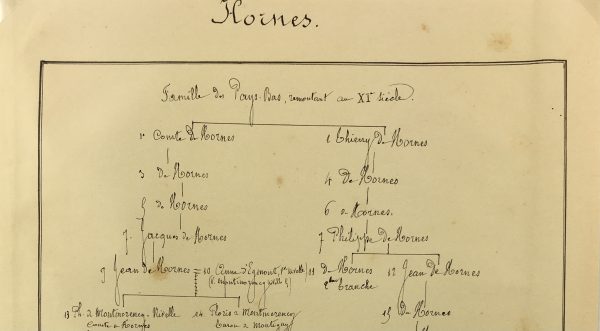 Hornes.
Famille des Pays-Bas, remontant au XIe siècle.
1 Comte de Hornes
2 Thierry de Hornes
3 de Hornes
4 de Hornes
5 de Hornes
6 de Hornes.
7 Jacques de Hornes
7 Philippe de Hornes
9 Jean de Hornes = 10 Anne d'Egmont,
(v. Montmorency
11 de Hornes
2me branche
12 Jean de Hornes
13 Ph. de Montmorency-Nivelle
Comte de Hornes
14 Floris de Montmorency
Baron de Montigny
15 de Hornes